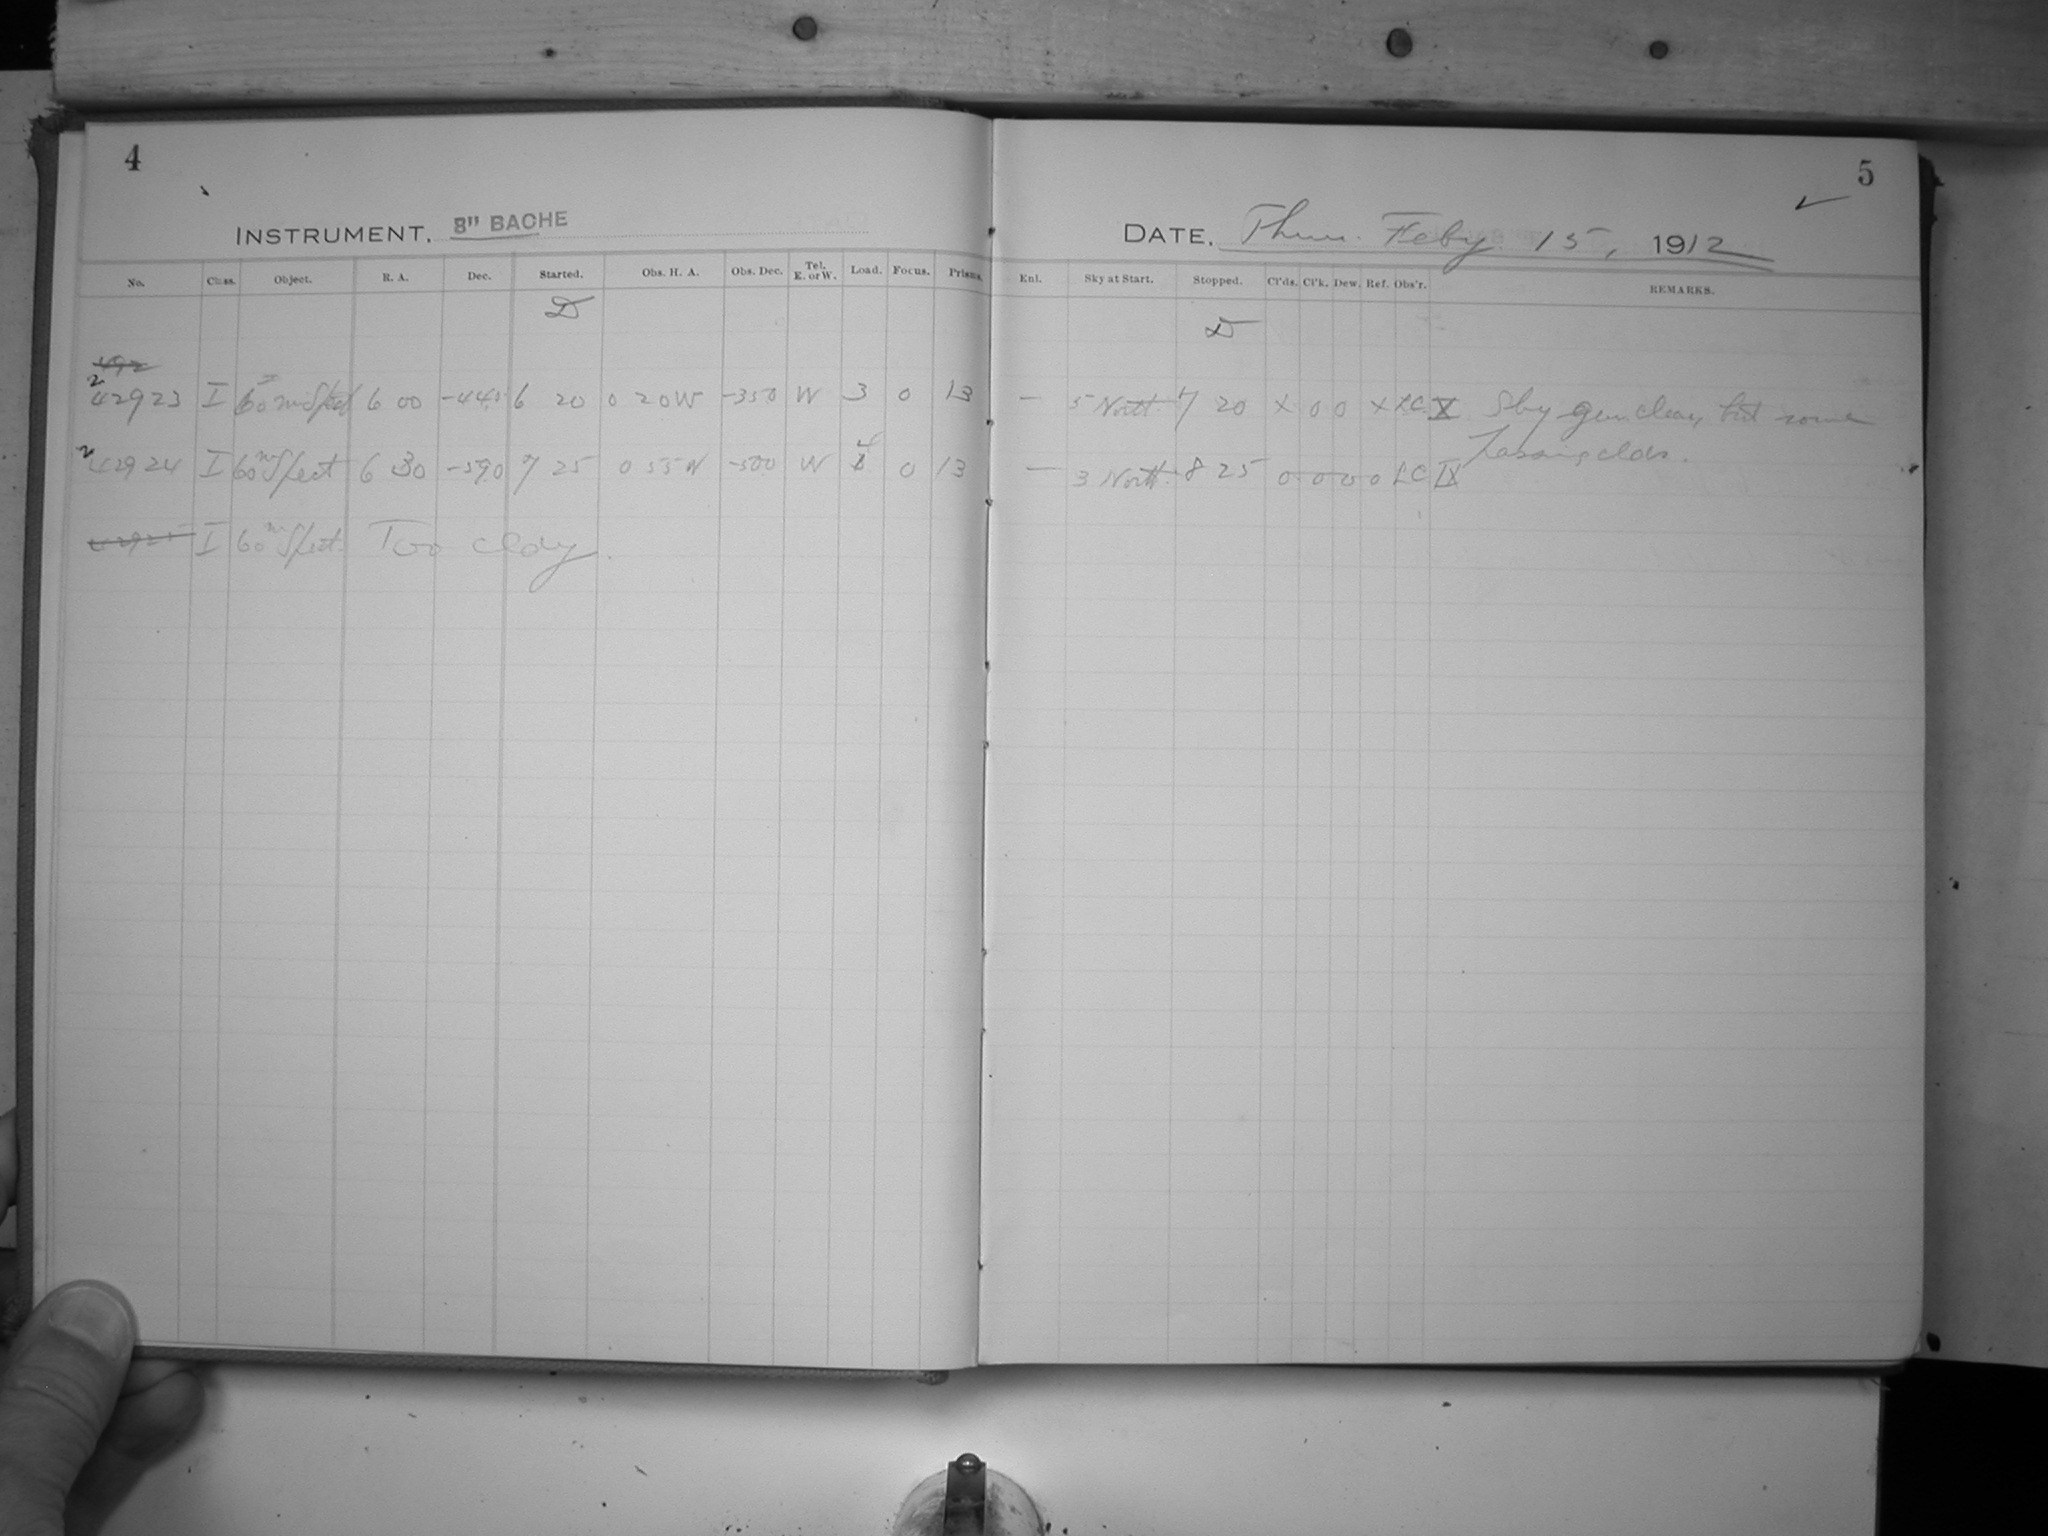 4
INSTRUMENT. 8" BACHE
No. Class. Object. R. A. Dec. Started. Obs. H. A. Obs. Dec. Tel. E. or W. Load. Focus. Prisms.
D
492
42923 I 60m Spect 6 00 -440 6 20 0 20W -350 W 3 0 13
42924 I 60m Spect 6 30 -590 7 25 0 55W -500 W 4 0 13
42925 I 60m Spect. Too cldy.
5
DATE. Thur. Feby 15, 1912
Enl. Sky at Start. Stopped. Cl'ds. Cl'k. Dew. Ref. Obs'r. REMARKS.
D
— 5 North 7 20 X 0 0 X LC X Sky gen clear, but some
passing clds.
— 3 North. 8 25 0 0 0 0 LC IX